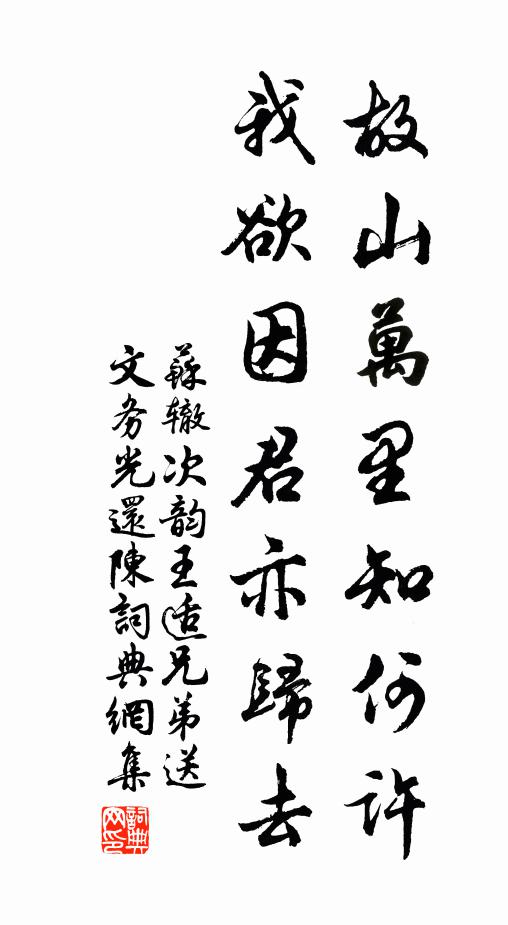 故山萬里知何許
我欲因君亦歸去
蘇辙次韵王适兄弟送
文务光還陳詞典網集
詞典
网印